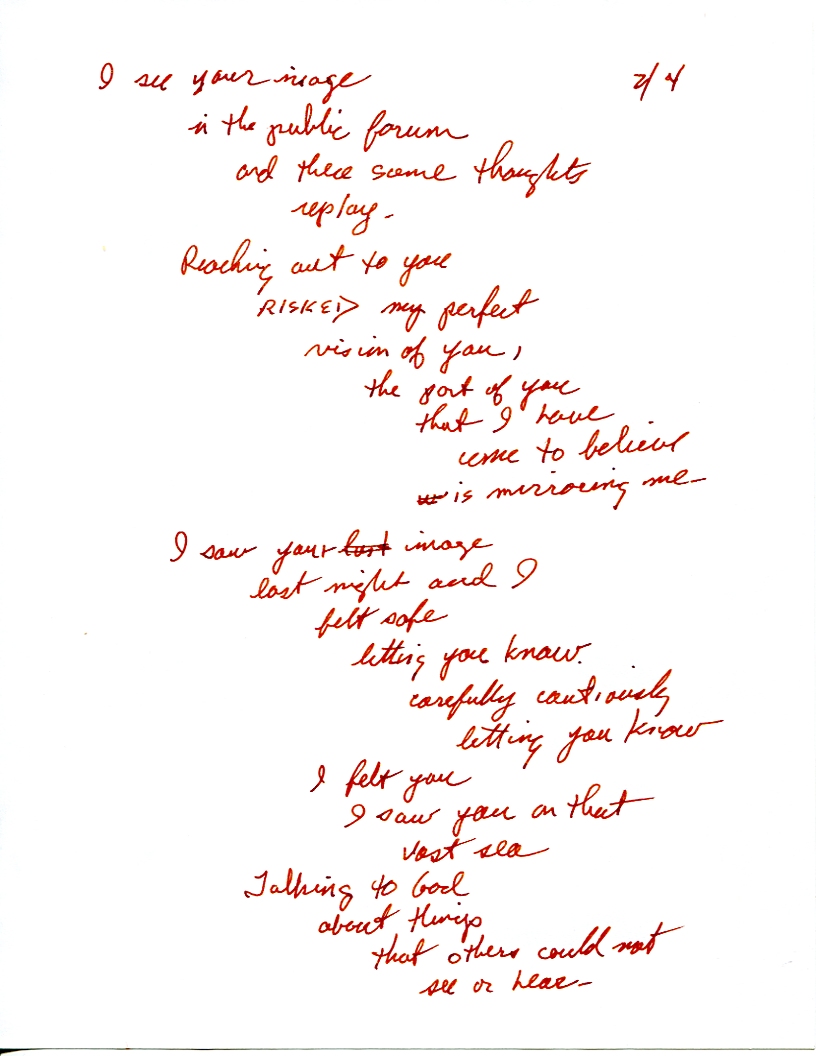 I see your image 2/4
in the public forum
and these same thoughts
replay.
Reaching out to you
RISKED my perfect
vision of you,
the part of you
that I have
come to believe
is mirroring me-
I saw your last image
last night and I
felt safe
letting you know.
carefully cautiously
letting you know
I felt you
I saw you on that
vast sea
Talking to God
about things
that others could not
see or hear-